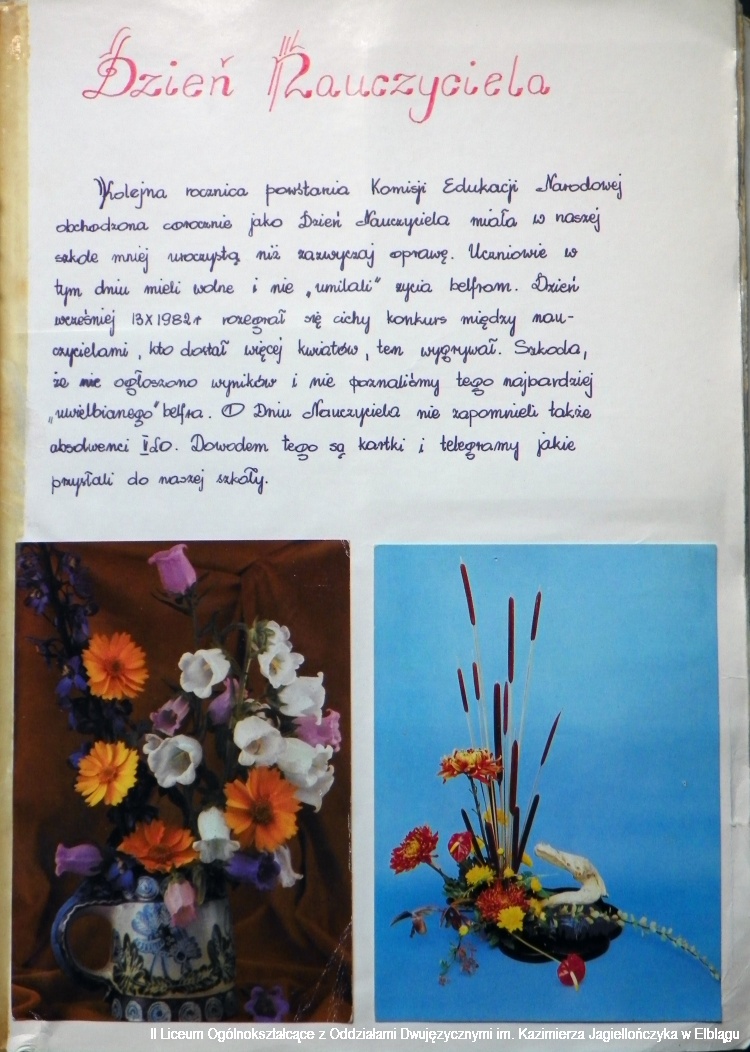 Dzień Nauczyciela
Kolejna rocznica powstania Komisji Edukacji Narodowej
obchodzona corocznie jako Dzień Nauczyciela miała w naszej
szkole mniej uroczystą niż zazwyczaj oprawę. Uczniowie w
tym dniu mieli wolne i nie „umilali" życia belfrom. Dzień
wcześniej 13 X 1982 r rozegrał się cichy konkurs między nau-
czycielami, kto dostał więcej kwiatów, ten wygrywał. Szkoda,
że nie ogłoszono wyników i nie poznaliśmy tego najbardziej
„uwielbianego" belfra. O Dniu Nauczyciela nie zapomnieli także
absolwenci II LO. Dowodem tego są kartki i telegramy jakie
przysłali do naszej szkoły.
II Liceum Ogólnokształcące z Oddziałami Dwujęzycznymi im. Kazimierza Jagiellończyka w Elblągu